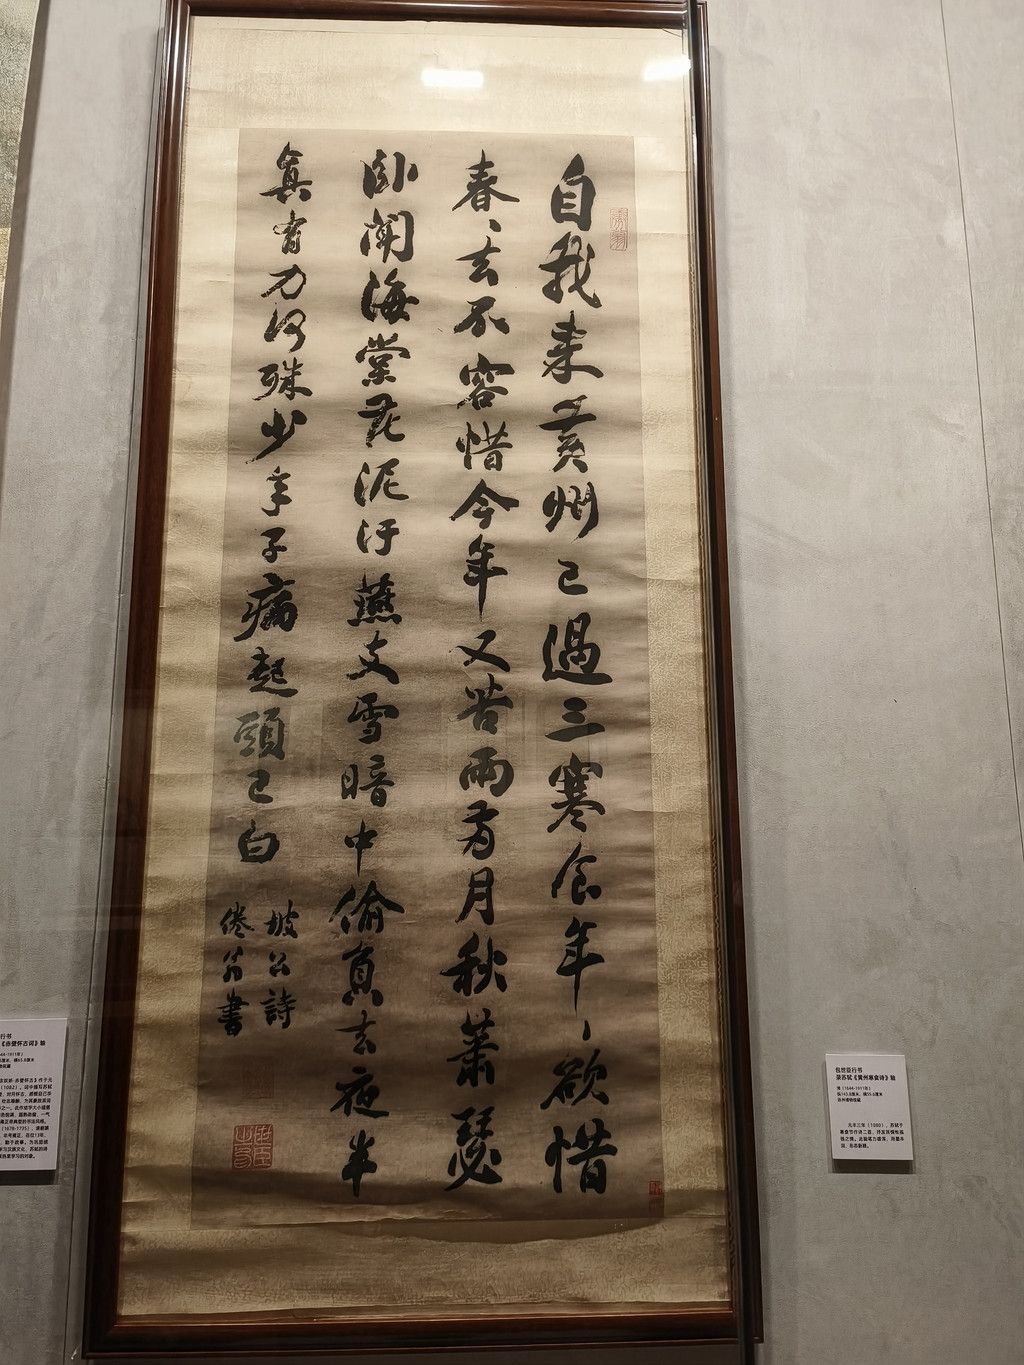 自我来黄州已過三寒食年、欲惜
春、去不容惜今年又苦雨两月秋蕭瑟
卧聞海棠花泥汙燕支雪暗中偷負去夜半
真有力何殊少年子病起頭已白
坡公詩
倦翁書
包世臣行书
录苏轼《黄州寒食诗》轴
清（1644-1911年）
纵143.8厘米，横55.6厘米
州博物馆藏
元丰三年（1080），苏轼于
寒食节作诗二首，抒发其惆怅孤
独之情。此轴笔力雄浑，用墨丰
行书
《赤壁怀古词》轴